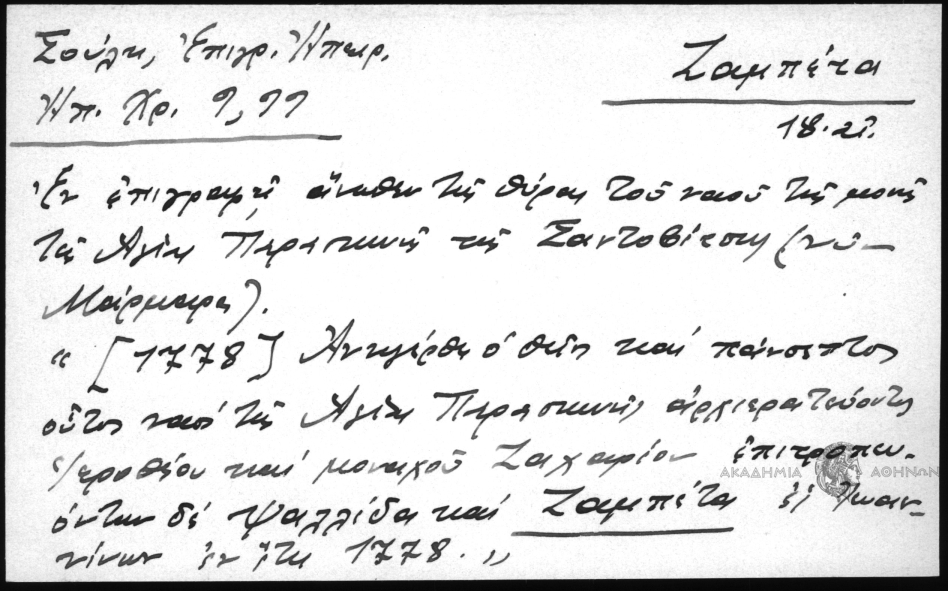 Σούλη, Ἐπιγρ. Ἠπείρ.
Ζαμπέτα
Ἠπ. Χρ. 9, 99
18. αἰ.
Ἐν ἐπιγραφῇ ἄνωθεν τῆς θύρας τοῦ ναοῦ τῆς μονῆς
τῆς Ἁγίας Παρασκευῆς τῆς Σαντοβίτσης (νῦν
Μάρμαρα).
" [1778] Ἀνηγέρθη ὁ θεῖος καὶ πάνσεπτος
οὗτος ναὸς τῆς Ἁγίας Παρασκευῆς ἀρχιερατεύοντος
Ἱεροθέου καὶ μοναχοῦ Ζαχαρίου ἐπιτροπευ-
ΑΚΑΔΗΜΙΑ ΑΘΗΝΩΝ
όντων δὲ Ψαλλίδα καὶ Ζαμπέτα ἐξ Ἰωαν-
νίνων ἐν ἔτει 1778. "